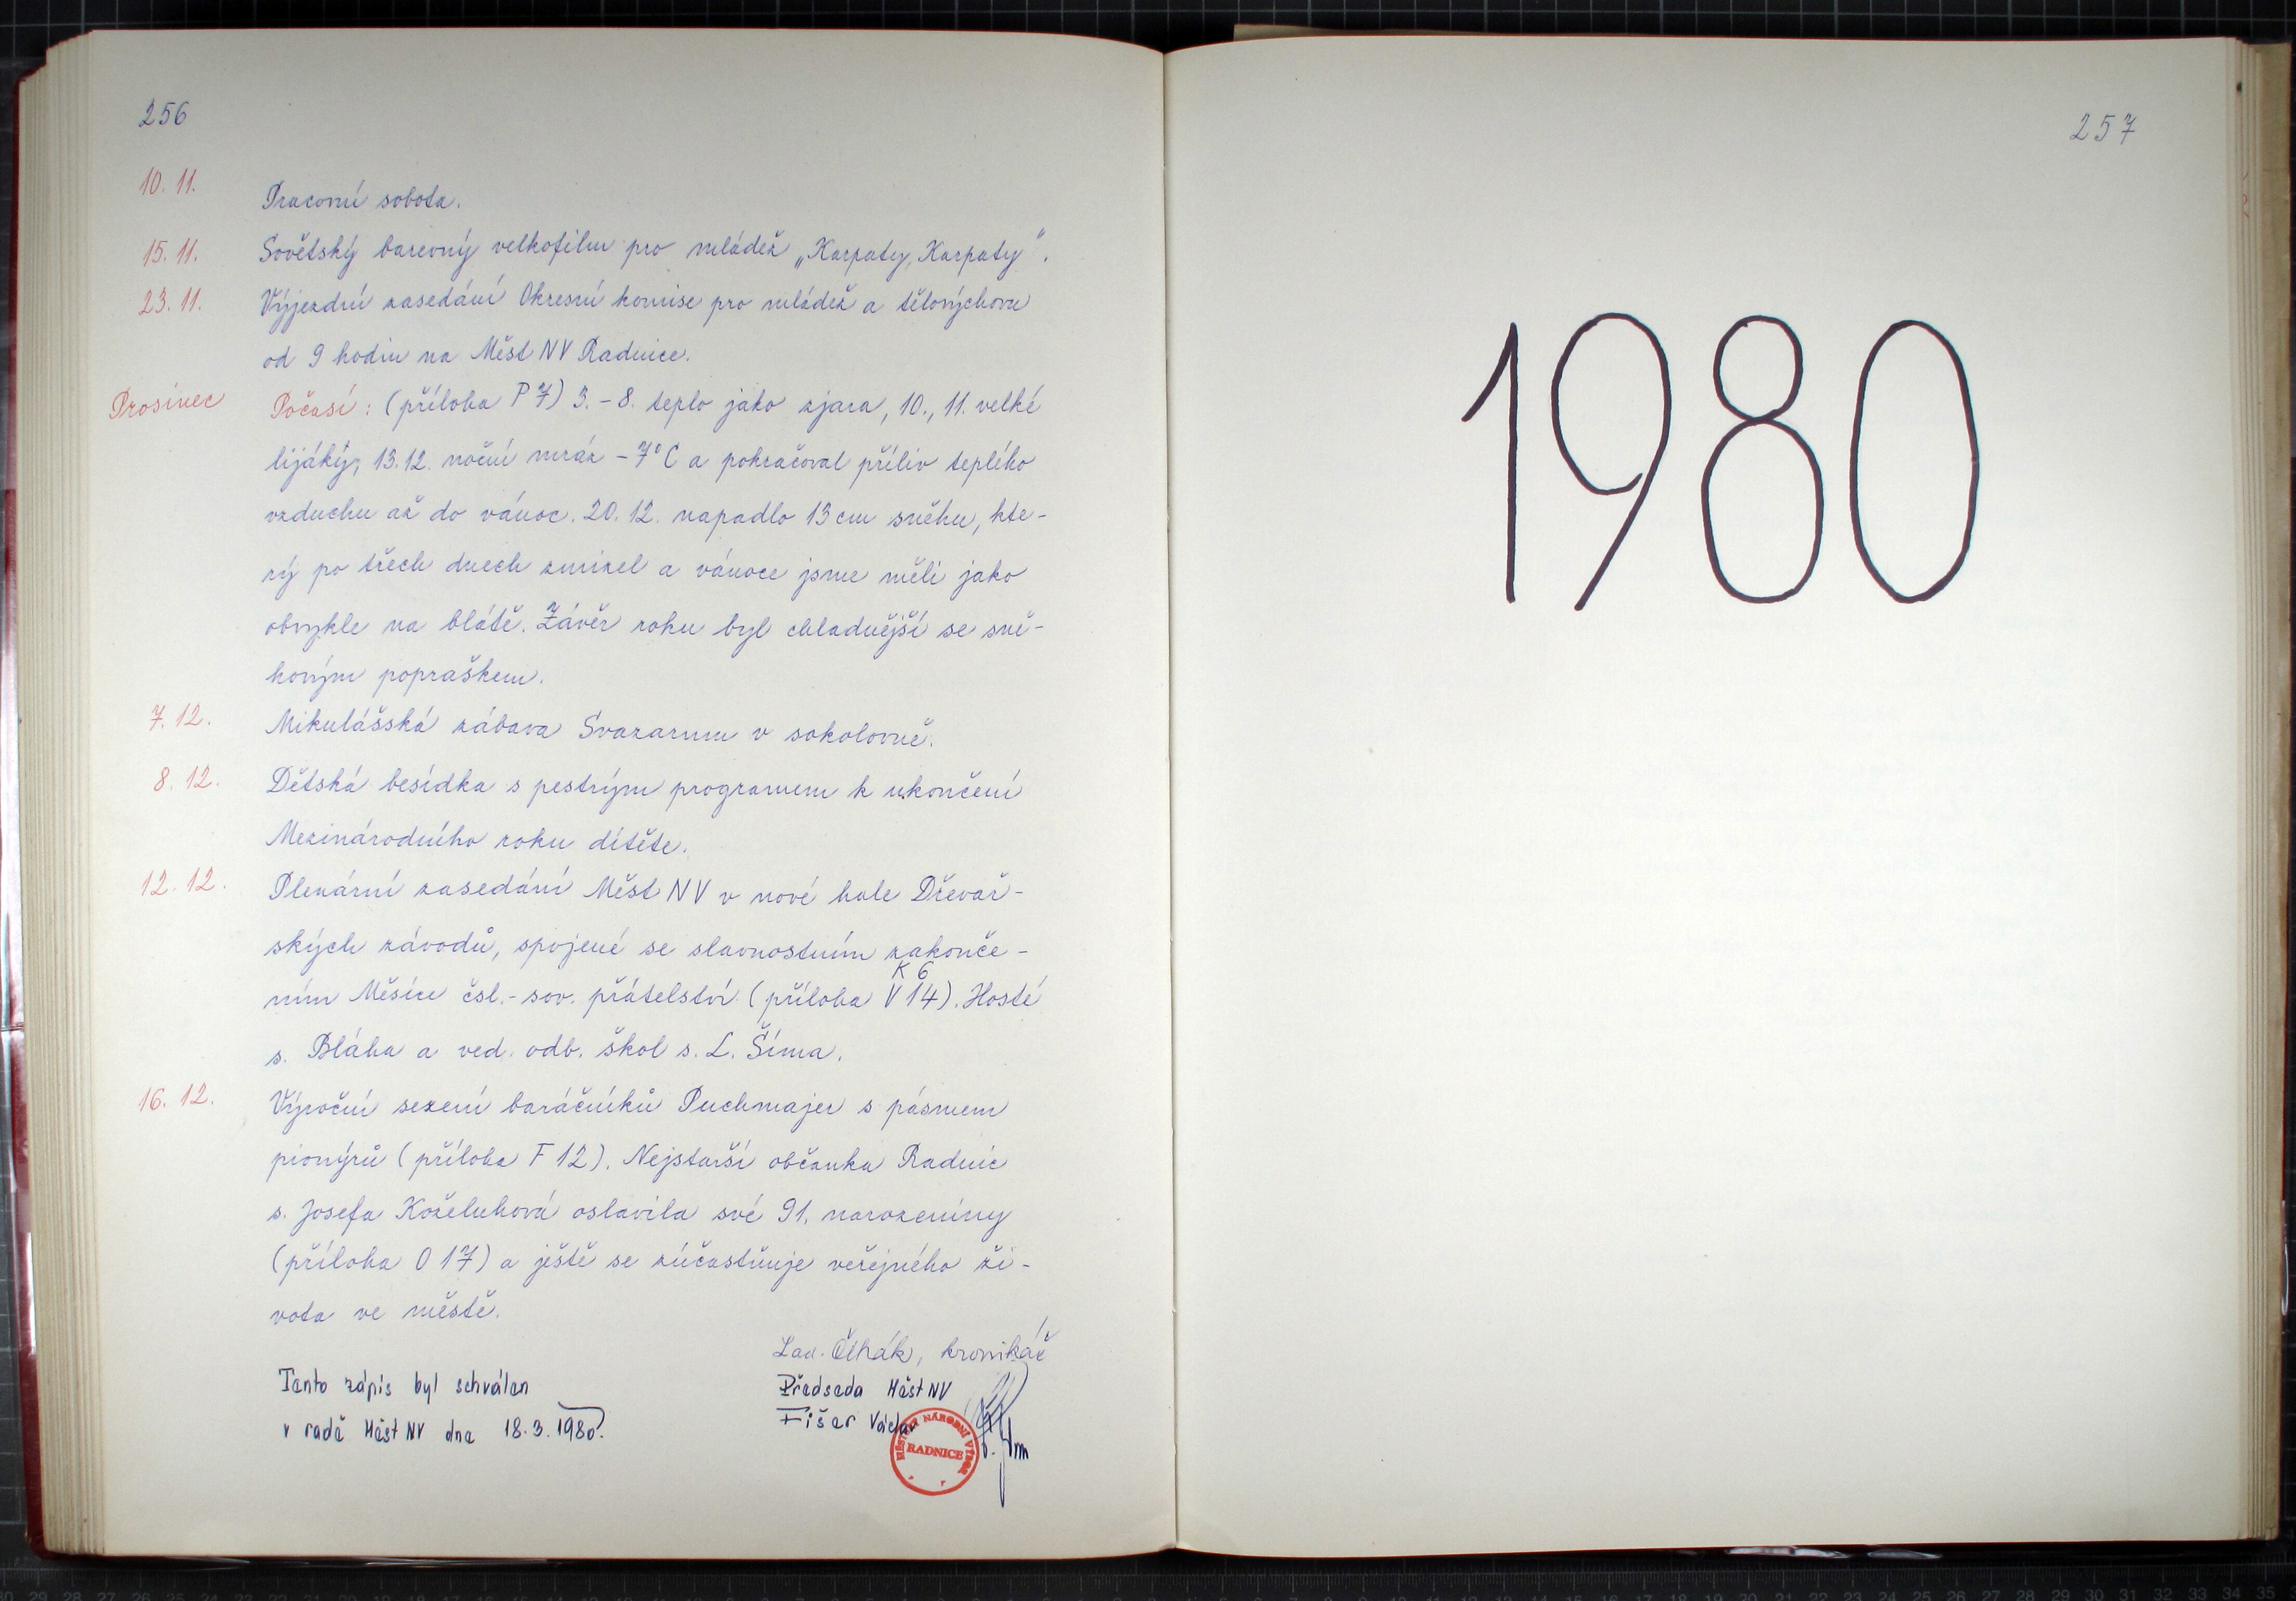 256
10. 11. Pracovní sobota.
15. 11. Sovětský barevný velkofilm pro mládež „Karpaty, Karpaty".
23. 11. Výjezdní zasedání Okresní komise pro mládež a tělovýchovu
od 9 hodin na Měst NV Radnice.
Prosinec Počasí: (příloha P 7) 3. - 8. teplo jako zjara, 10., 11. velké
lijáky, 13. 12. noční mráz - 7°C a pokračoval příliv teplého
vzduchu až do vánoc. 20. 12. napadlo 13 cm sněhu, kte-
rý po třech dnech zmizel a vánoce jsme měli jako
obvykle na blátě. Závěr roku byl chladnější se sně-
hovým popraškem.
7. 12. Mikulášská zábava Svazarmu v sokolovně.
8. 12. Dětská besídka s pestrým programem k ukončení
Mezinárodního roku dítěte.
12. 12. Plenární zasedání Měst NV v nové hale Dřevař-
ských závodů, spojené se slavnostním zakonče-
K 6
ním Měsíce čsl.- sov. přátelství (příloha V 14). Hosté
s. Bláha a ved. odb. škol s. L. Šíma.
16. 12. Výroční sezení baráčníků Puchmajer s pásmem
pionýrů (příloha F 12). Nejstarší občanka Radnic
s. Josefa Koželuhová oslavila své 91. narozeniny
(příloha O 17) a ještě se zúčastňuje veřejného ži-
vota ve městě.
Lad. Cihák, kronikář
Tento zápis byl schválen
v radě Měst NV dne 18. 3. 1980.
Předseda Měst NV
Fišer Václav
MĚSTSKÝ NÁRODNÍ VÝBOR
RADNICE
257
1980